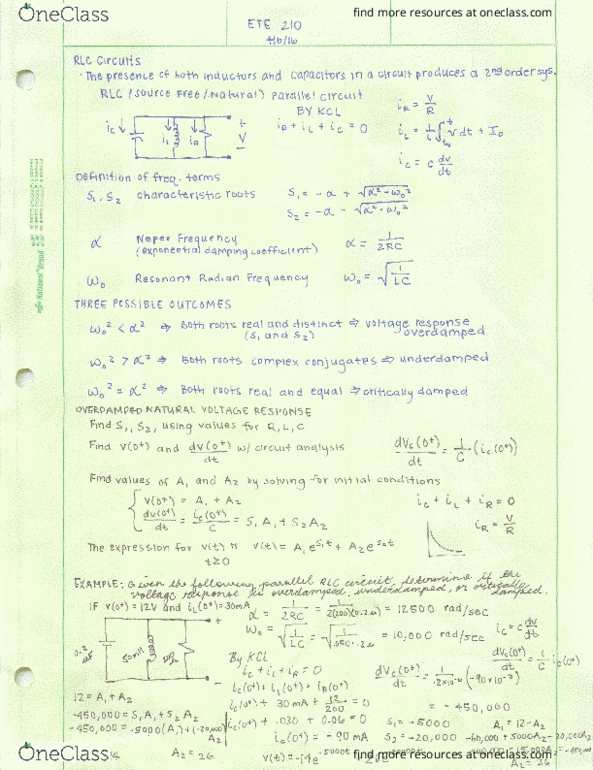 OneClass
find more resources at oneclass.com
ETE 210
RLC Circuits
· The presence of both inductors and capacitors in a circuit produces a 2nd order sys.
RLC (source Free/Natural) Parallel Circuit
BY KCL
iR + iL + iC = 0
iR = V/R
iL = 1/L ∫ v dt + I0
iC = C dv/dt
iC iL iR + V -
Definition of freq. terms
S1, S2 characteristic roots
S1 = -α + √(α² - ω0²)
S2 = -α - √(α² - ω0²)
α Neper Frequency
(exponential damping coefficient)
α = 1/2RC
ω0 Resonant Radian Frequency
ω0 = √(1/LC)
THREE POSSIBLE OUTCOMES
ω0² < α² ⇒ Both roots real and distinct ⇒ voltage response
(S1 and S2) overdamped
ω0² > α² ⇒ Both roots complex conjugates ⇒ underdamped
ω0² = α² ⇒ Both roots real and equal ⇒ critically damped
OVERDAMPED NATURAL VOLTAGE RESPONSE
Find S1, S2, using values for R, L, C
Find v(0+) and dv(0+)/dt w/ circuit analysis
dVc(0+)/dt = 1/C (ic(0+))
Find values of A1 and A2 by solving for initial conditions
v(0+) = A1 + A2
dv(0+)/dt = ic(0+)/C = S1 A1 + S2 A2
ic + iL + iR = 0
iR = V/R
The expression for v(t) is v(t) = A1 e^S1t + A2 e^S2t
t≥0
EXAMPLE: Given the following parallel RLC circuit, determine if the
voltage response is overdamped, underdamped, or critically
damped.
IF v(0+) = 12V and iL(0+) = 30mA
α = 1/2RC = 1/2(200)(0.2μ) = 12500 rad/sec
ω0 = √(1/LC) = √(1/.05·0.2μ) = 10,000 rad/sec
ic = C dv/dt
0.2 μF 50mH
By KCL
ic + iL + iR = 0
ic(0+) + iL(0+) + iR(0+)
ic(0+) + 30mA + 12/200 = 0
ic(0+) + .030 + 0.06 = 0
ic(0+) = -90 mA
dVc(0+)/dt = 1/C ic(0+)
= -450,000
12 = A1 + A2
-450,000 = S1 A1 + S2 A2
S1 = -5000
S2 = -20,000
A1 = 12 - A2
A2 = 26
OneClass
find more resources at oneclass.com